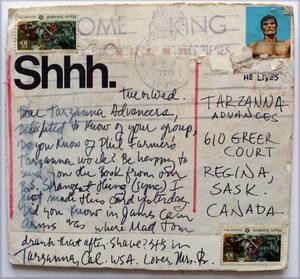 OME KING
MASTERPIECES
1976
Shhh.
HE LIVES
Tue or Wed.
Dear Tarzanna Advancers,
Delighted to know of your group,
Do you know of Phil Farmers
Tarzanna works? Be happy to
send you the book from our
B.S. Strangest thing (sync) I
just made this card yesterday.
Did you know in James Cain
was where Mad Tom
drank that after shave? It's in
Tarzanna, Cal. USA. Love, Mrs. B.
TARZANNA
ADVANCES
610 GREER
COURT
REGINA,
SASK.
CANADA